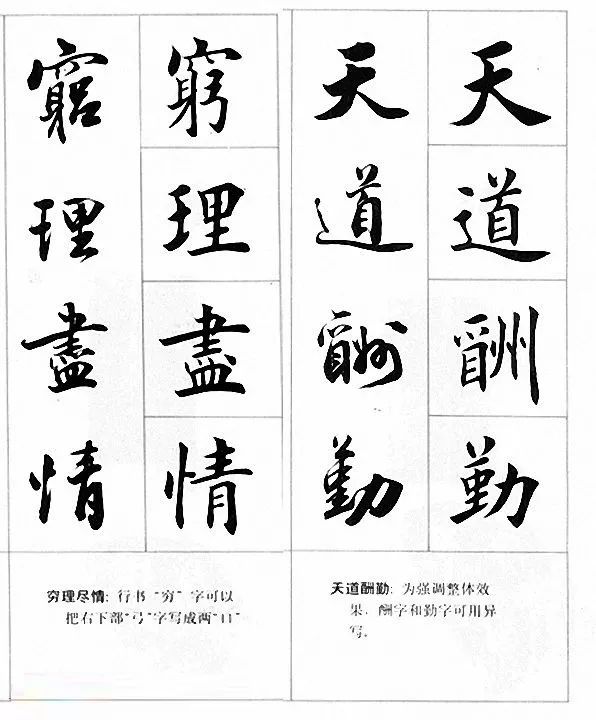 天道酬勤
天道酬勤
天道酬勤: 为强调整体效
果，酬字和勤字可用异
写。
窮理盡情
窮理盡情
穷理尽情: 行书“穷”字可以
把右下部“弓”字写成两“口”